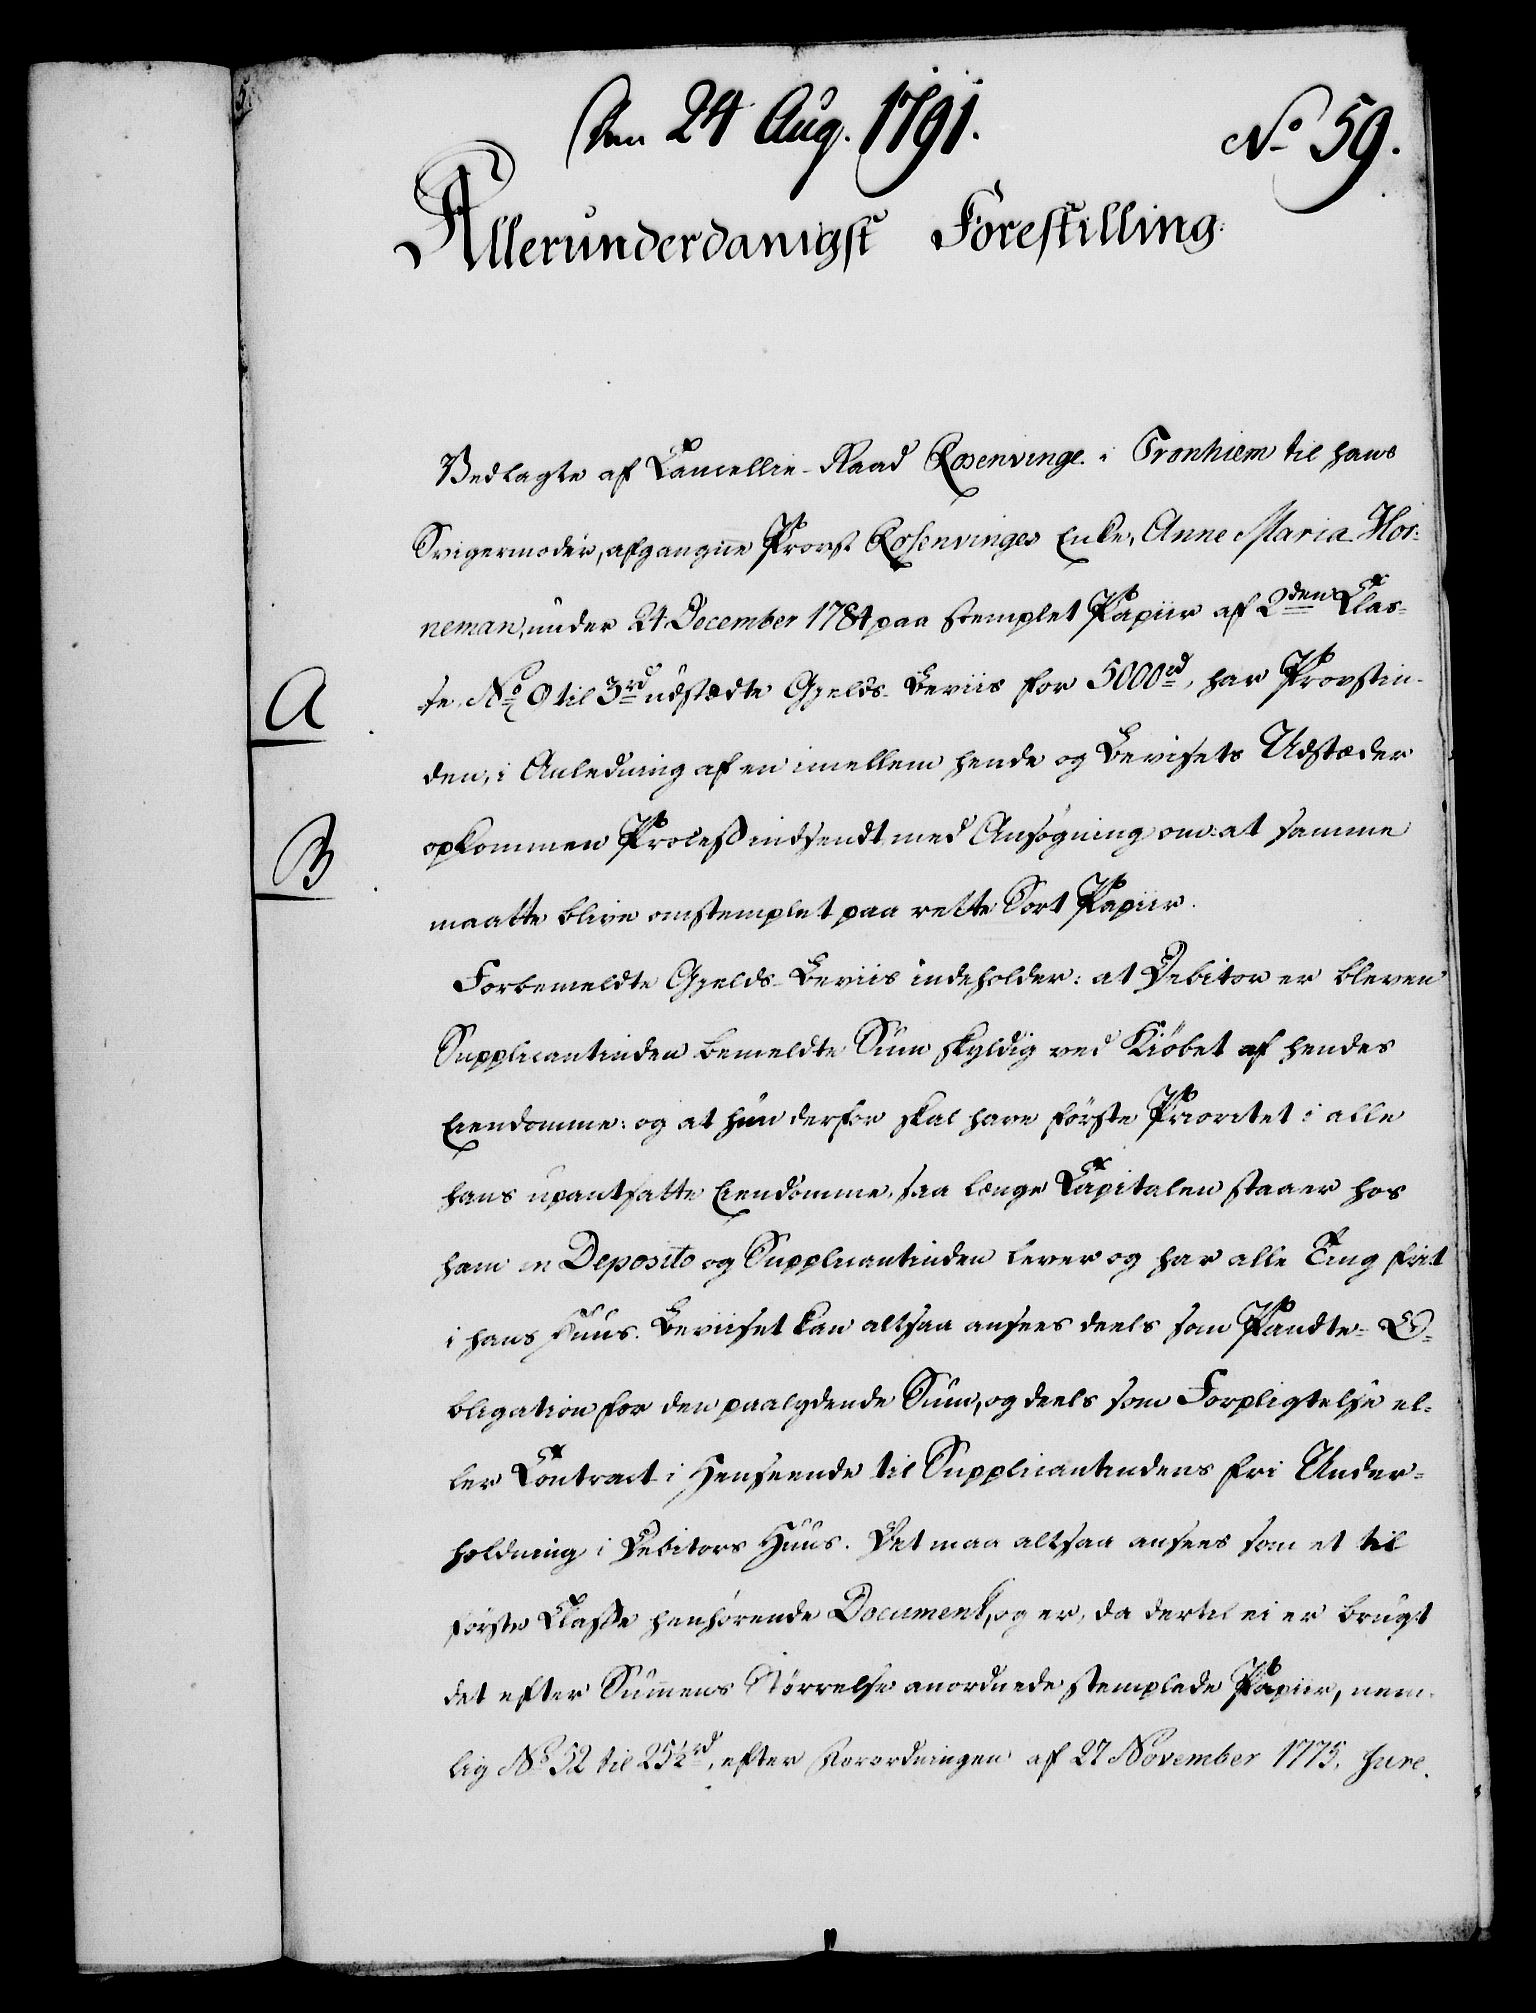 Den 24 Aug. 1791.
No 59.
Allerunderdanigst Forestilling.
Vedlagte af Cancellie-Raad Rosenvinge i Tronhiem til hans
Svigermoder, afgangne Provst Rosenvinges Enke, Anne Maria Hor-
neman, under 24 December 1784 paa stemplet Papiir af 2den Clas-
se No 9 til 3rd udstædte Gjelds-Beviis for 5000rd, har Provstin-
A
den, i Anledning af en imellem hende og Bevisets Udstæder
opkommen Proces indsendt med Ansøgning om: at samme
B
maatte blive omstemplet paa rette Sort Papiir.
Forbemeldte Gjelds-Beviis indeholder: at Debitor er bleven
Supplicantinden bemeldte Sum skyldig ved Kiöbet af hendes
Eiendomme: og at hun derfor skal have første Prioritet i alle
hans upantsatte Eiendomme, saa længe Capitalen staaer hos
ham in Deposito og Supplicantinden lever og har alle Ting frit
i hans Huus. Beviiset kan altsaa ansees deels som Pandte-O-
bligation for den paalydende Sum, og deels som Forpligtelse el-
ler Contract i Henseende til Supplicantindens fri Under-
holdning i Debitors Huus. Det maa altsaa ansees som et til
første Classe henhørende Document, og er, da dertil ei er brugt
det efter Summens Størrelse anordnede stemplede Papiir, nem-
lig No 52 til 25½rd, efter Forordningen af 27 November 1775, Jure